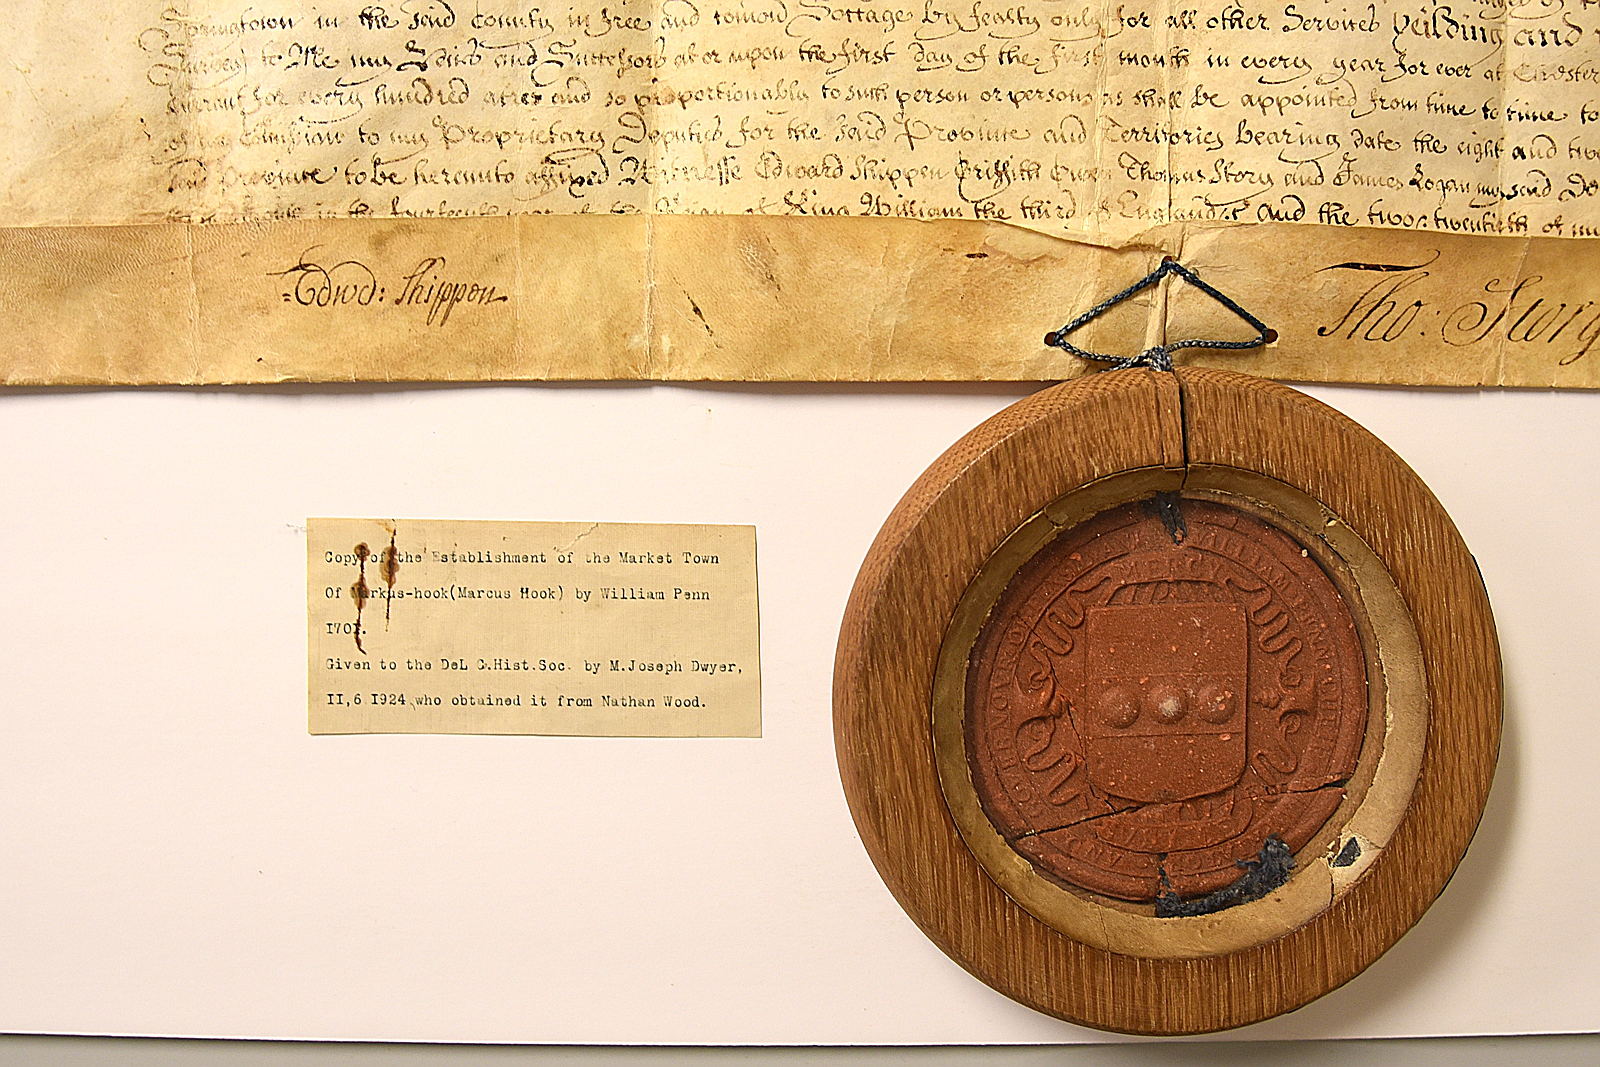 Springtown in the said County in free and comon Soccage by fealty only for all other Services Yeilding and
to Me my Heirs and Successors at or upon the first day of the first month in every year for ever at Chester
for every hundred acres and so proportionably to such person or persons as shall be appointed from time to time to
Comission to my Proprietary Deputies for the said Province and Territories bearing date the eight and
said Province to be hereunto affixed Witnesse Edward Shippen Griffith Owen Thomas Story and James Logan my said
in the fourteenth year of the Reign of King William the third of England &c and the two & twentieth of
Edwd: Shippen
Tho: Story
Copy of the Establishment of the Market Town
Of Markus-hook(Marcus Hook) by William Penn
1701.
Given to the DeL C.Hist.Soc. by M.Joseph Dwyer,
II,6 1924 who obtained it from Nathan Wood.
MERCY
WILLIAM PENN